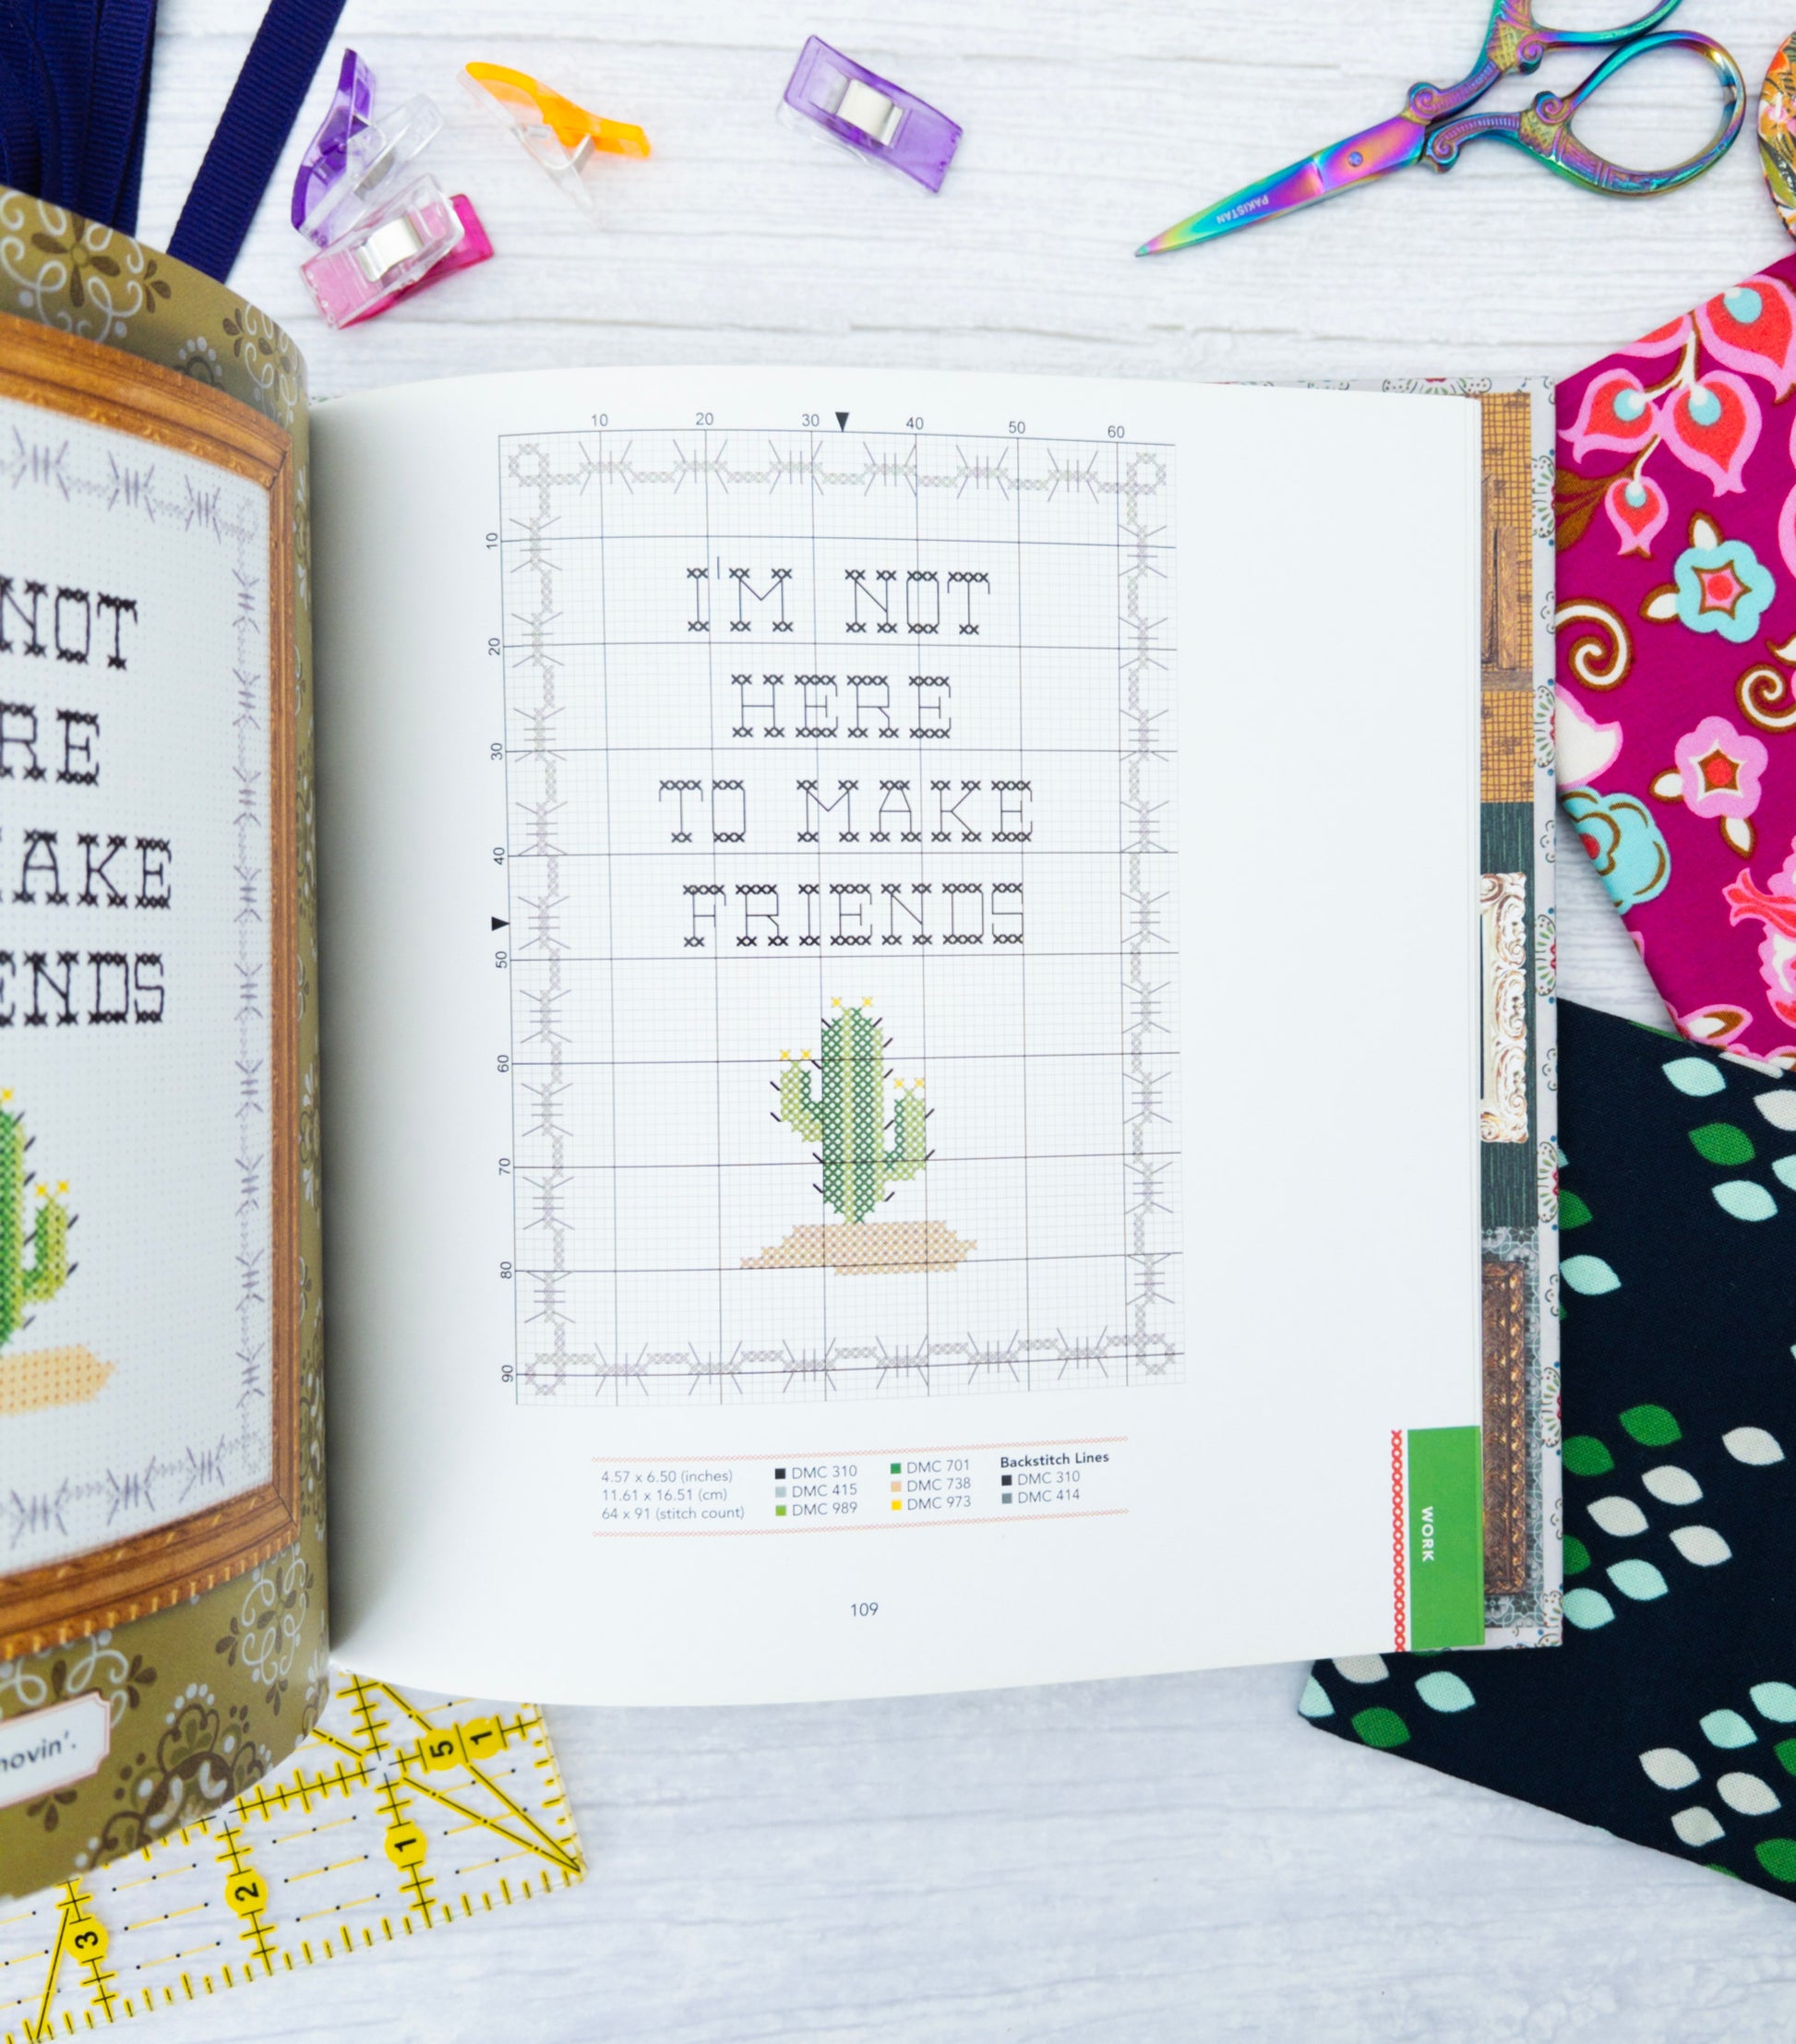 PAKISTAN
NOT
RE
AKE
ENDS
movin'.
10 20 30 40 50 60
10
20
30
40
50
60
70
80
90
I'M NOT
HERE
TO MAKE
FRIENDS
4.57 x 6.50 (inches)
11.61 x 16.51 (cm)
64 x 91 (stitch count)
DMC 310
DMC 415
DMC 989
DMC 701
DMC 738
DMC 973
Backstitch Lines
DMC 310
DMC 414
WORK
109
5 1
1
2
3